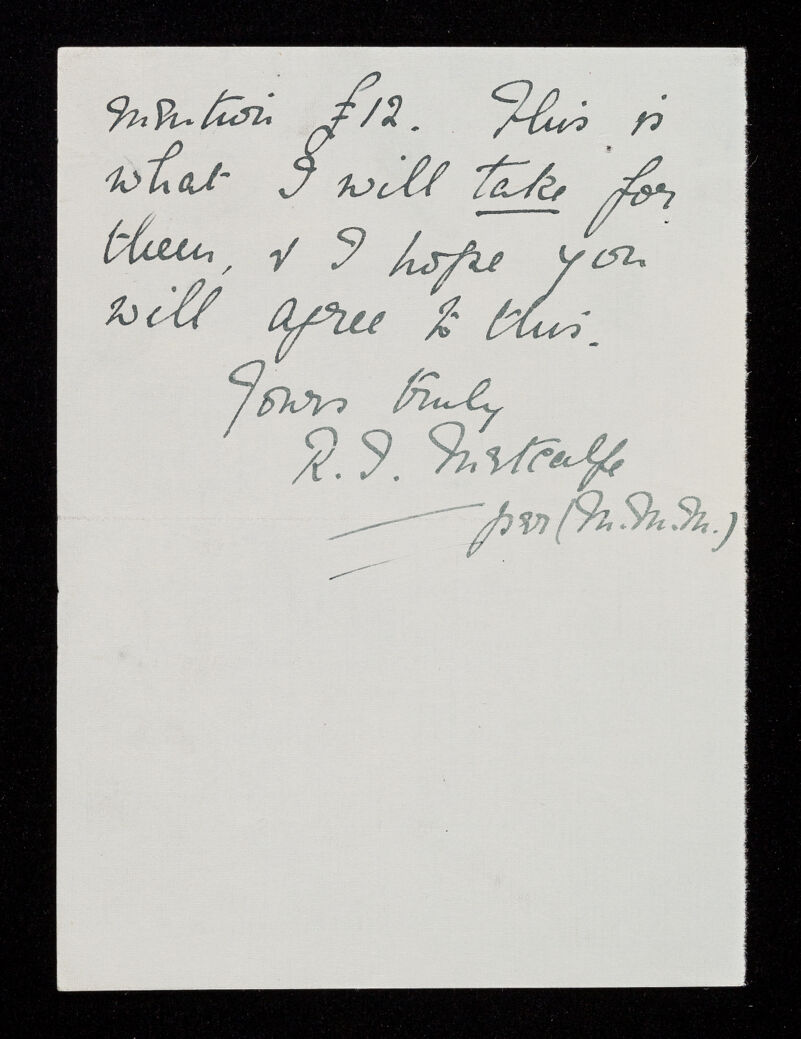 mention £12. This is
what I will take for
them, & I hope you
will agree to this.
Yours truly
R. I. Metcalfe
per (M.M.M.)